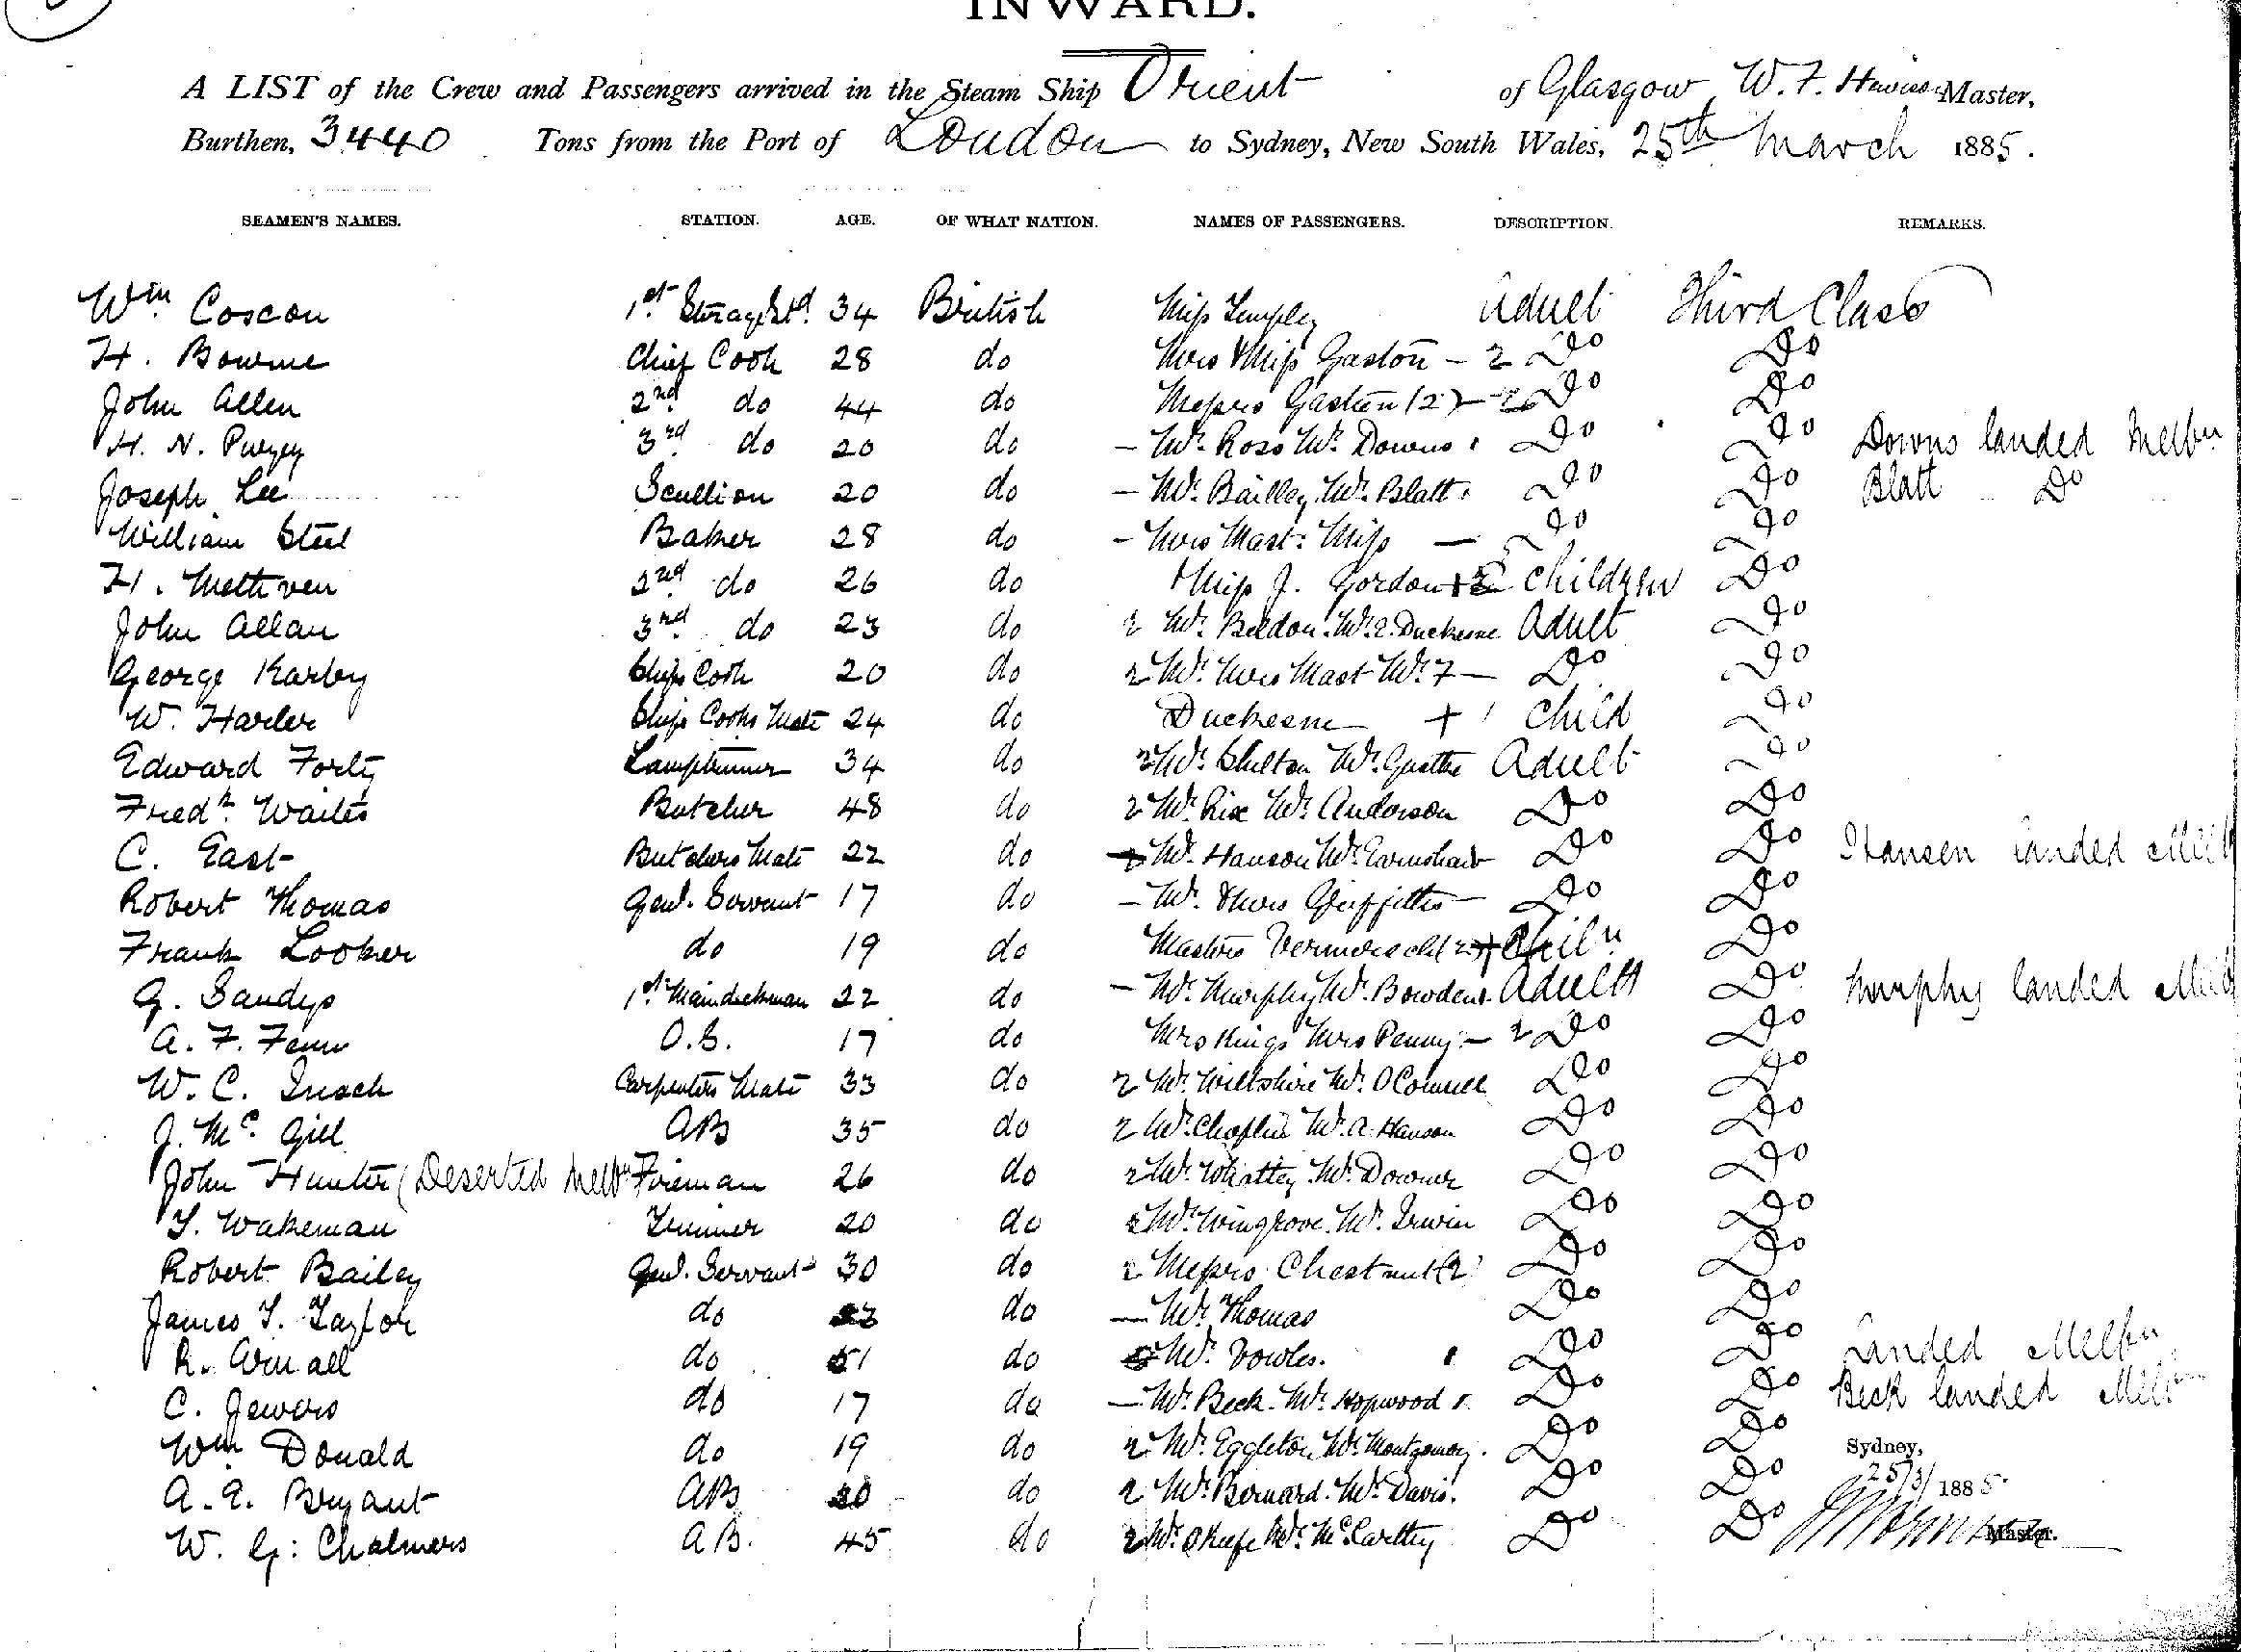 INWARD.
A LIST of the Crew and Passengers arrived in the Steam Ship Orient of Glasgow W. F. Master,
Burthen, 3440 Tons from the Port of London to Sydney, New South Wales, 25th March 1885.
SEAMEN'S NAMES. STATION. AGE. OF WHAT NATION. NAMES OF PASSENGERS. DESCRIPTION. REMARKS.
Wm Coscon 1st 34 British Miss Adult Third Class
H. Bowme Chief Cook 28 do Mrs & Miss Gaston - 2 Do Do
John Allen 2nd do 44 do Messrs Gaston (2) - 2 Do Do
H. N. 3rd do 20 do - Mr. Ross Mr. Downs Do Do Downs landed Melbn
Joseph Lee Scullion 20 do - Mr. Bailley Mr. Blatt Do Do Blatt Do
William Steel Baker 28 do - Mrs Mast: Miss - Do Do
H. Methven 2nd do 26 do & Miss J. Gordon + children Do
John Allan 3rd do 23 do 2 Mr. Beldon Mr. E. Duchesne Adult Do
George Karby Ships Cook 20 do 2 Mr. Mrs Mast Mr. F - Do Do
W. Harler Ships Cooks Mate 24 do Duchesne + 1 child Do
Edward Forty Lamptrimmer 34 do 2 Mr. Shelton Mr. Adult Do
Fredk. Waites Butcher 48 do 2 Mr. Rix Mr. Anderson Do Do
C. East Butchers Mate 22 do Mr. Hanson Mr. Earnshaw Do Do Hansen landed
Robert Thomas Genl. Servant 17 do - Mr. & Mrs Griffiths - Do Do
Frank Looker do 19 do Masters Do
G. Sandys 1st Maindeckman 22 do - Mr. Murphy Mr. Bowden Adults Do Murphy landed
A. F. Fenn O.S. 17 do Mrs Kings Mrs Penny - 2 Do Do
W. C. Insch Carpenters Mate 33 do 2 Mr. Wiltshire Mr. OConnell Do Do
J. Mc. Gill AB 35 do 2 Mr. Chaplin Mr. A. Hanson Do Do
John Hunter (Deserted Melbn Fireman 26 do 2 Mr. Whattey Mr. Downer Do Do
T. Wakeman Trimmer 20 do 2 Mr. Wingrove Mr. Irwin Do Do
Robert Bailey Genl. Servant 30 do 2 Messrs Chestnut (2) Do Do
James T. Taylor do do - Mr. Thomas Do Do
R. Arnall do 51 do Mr. Vowles. Do Do Landed Melbn
C. Jewers do 17 do - Mr. Beck. Mr. Hopwood Do Do Beck landed Melbn
Wm Donald do 19 do 2 Mr. Eggleton Mr. Montgomery. Do Do Sydney,
A. E. Bryant AB do 2 Mr. Bernard. Mr. Davis. Do Do 25/3/1885
W. G: Chalmers A.B. 45 do 2 Mr. OKeefe Mr. McCarthy Do Do Master.